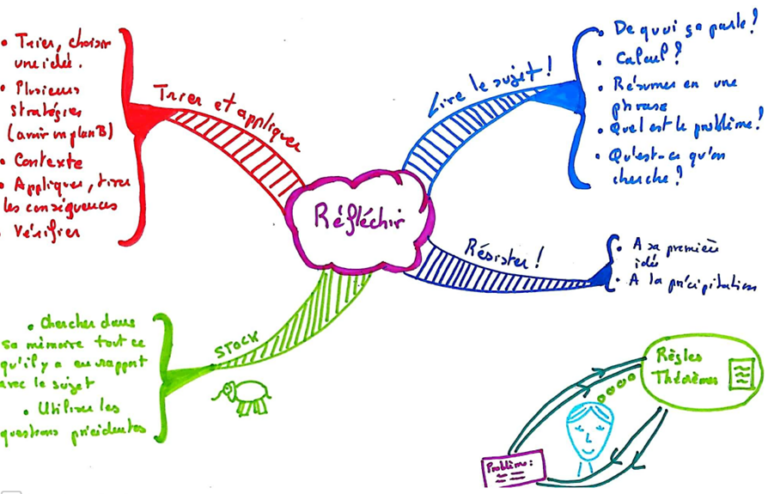 Réfléchir
Lire le sujet !
• De quoi ça parle ?
• Calcul ?
• Résumer en une
phrase
• Quel est le problème ?
• Qu'est-ce qu'on
cherche ?
Résister !
• A sa première
idée
• A la précipitation
STOCK
• Chercher dans
sa mémoire tout ce
qu'il y a en rapport
avec le sujet
• Utiliser les
questions précédentes
Trier et appliquer
• Trier, choisir
une idée.
• Plusieurs
stratégies
(avoir un plan B)
• Contexte
• Appliquer, tirer
les conséquences
• Vérifier
Règles
Théorèmes
Problème :